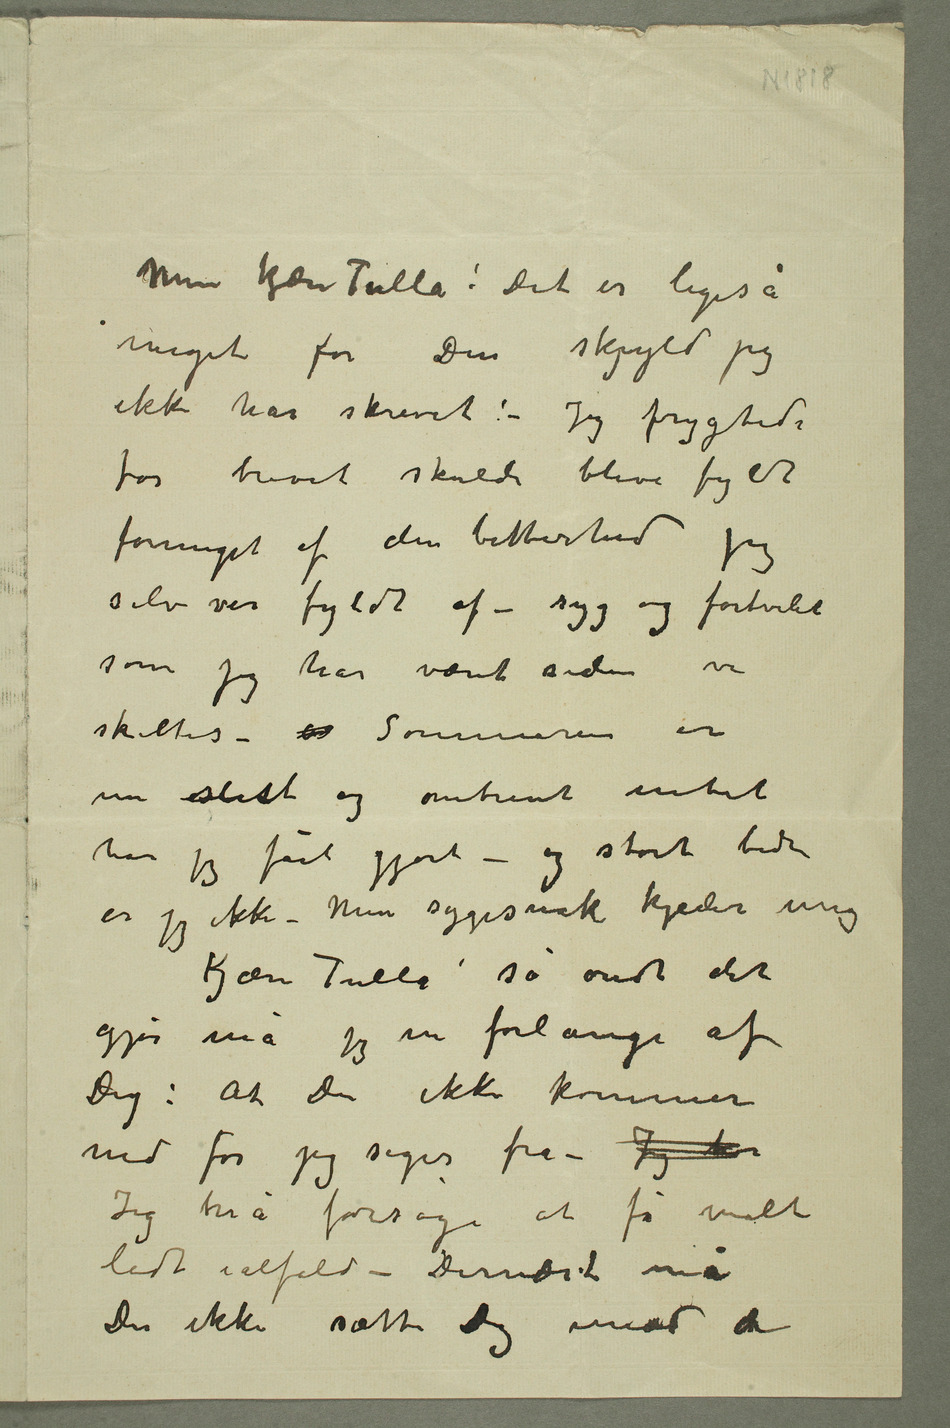 N1818
Min kjære Tulla! Det er ligeså
meget for Din skjyld jeg
ikke har skrevet! – Jeg frygtede
for brevet skulde blive fyldt
formeget af den bitterhed jeg
selv var fyldt af – syg og fortvilet
som jeg har været siden vi
skiltes – er Sommeren er
nu slut og omtrent intet
har jeg fåt gjort – og stort bedre
er jeg ikke – Min sygesnak kjeder mig
Kjære Tulla' så ondt det
gjør må jeg nu forlange af
Dig: At Du ikke kommer
ned før jeg siger fra – Jeg har
Jeg må forsøge at få malt
lidt ialfald – Dernæst må
Du ikke sætte Dig imod de